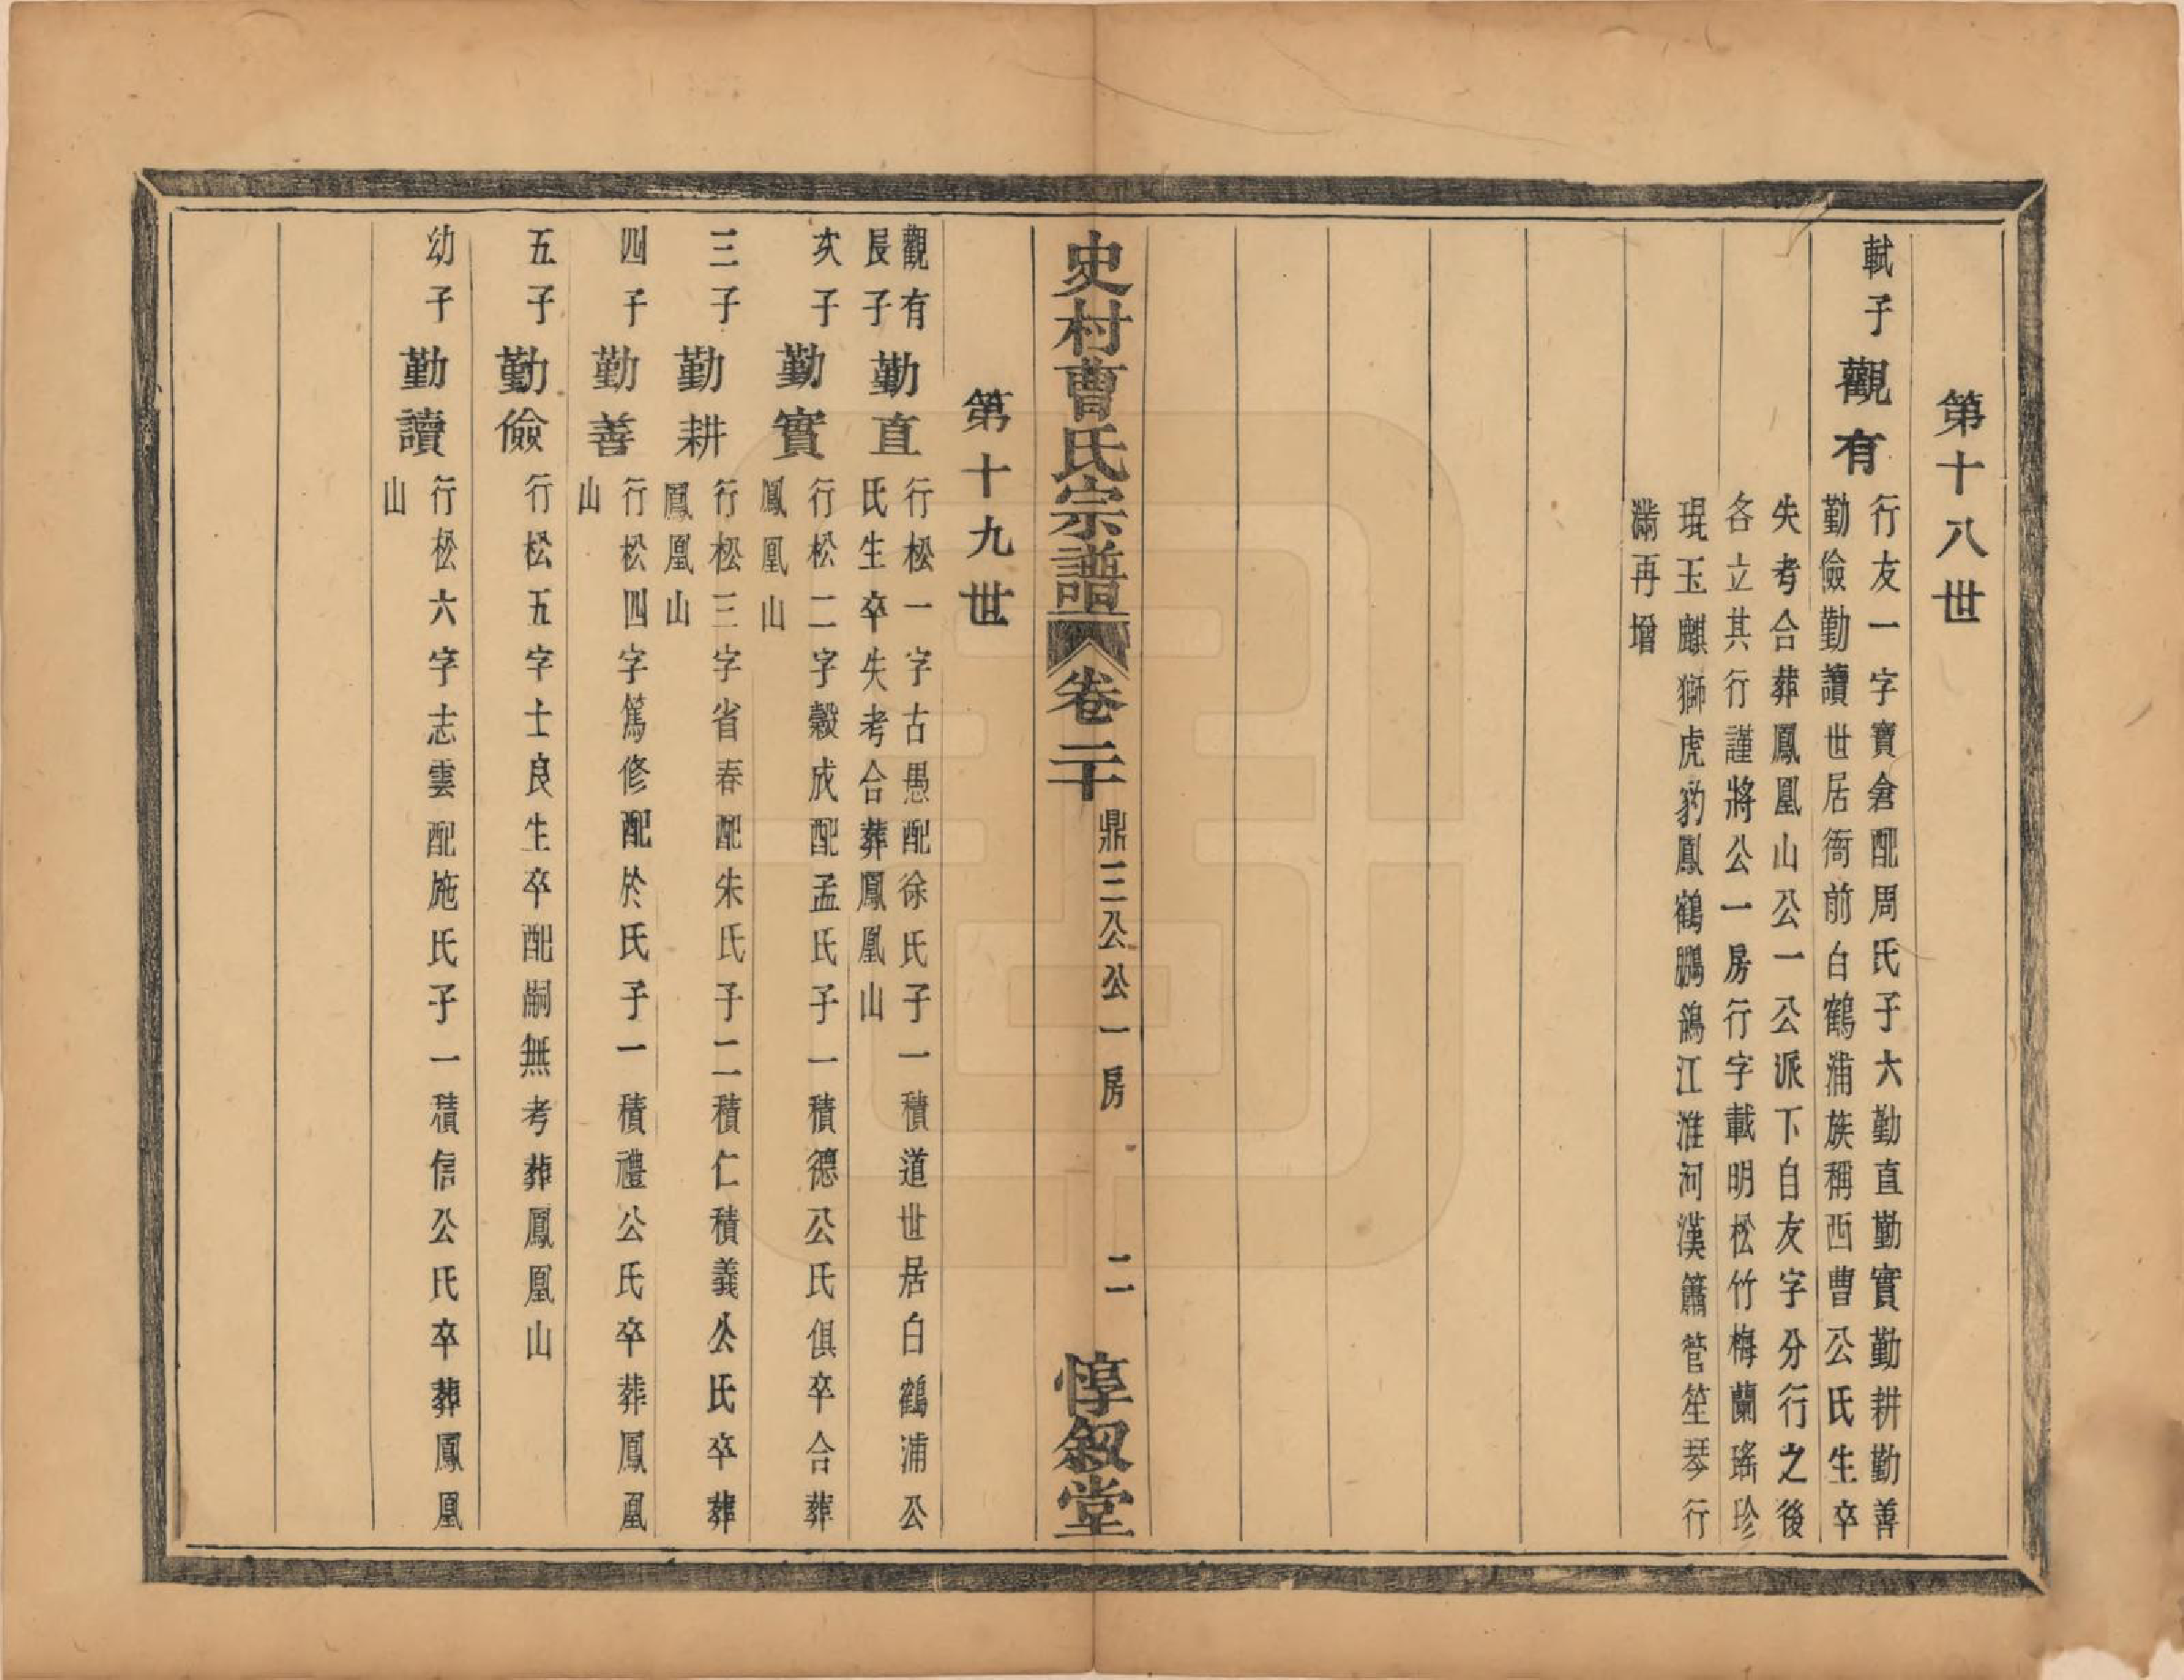 第十八世
軾子
觀有
行友一字寶倉配周氏子六勤直勤實勤耕勤善
勤儉勤讀世居衙前白鶴浦族稱西曹公氏生卒
失考合葬鳳凰山公一公派下自友字分行之後
各立其行謹將公一房行字載明松竹梅蘭瑤珍
琨玉麒獅虎豹鳳鶴鵬鴿江淮河漢簫管笙琴行
滿再增
史村曹氏宗譜 卷二十 鼎三公公一房 二 惇叙堂
第十九世
觀有
長子
勤直
行松一字古愚配徐氏子一積道世居白鶴浦公
氏生卒失考合葬鳳凰山
次子
勤實
行松二字穀成配孟氏子一積德公氏俱卒合葬
鳳凰山
三子
勤耕
行松三字省春配朱氏子二積仁積義公氏卒葬
鳳凰山
四子
勤善
行松四字篤修配於氏子一積禮公氏卒葬鳳凰
山
五子
勤儉
行松五字士良生卒配嗣無考葬鳳凰山
幼子
勤讀
行松六字志雲配施氏子一積信公氏卒葬鳳凰
山